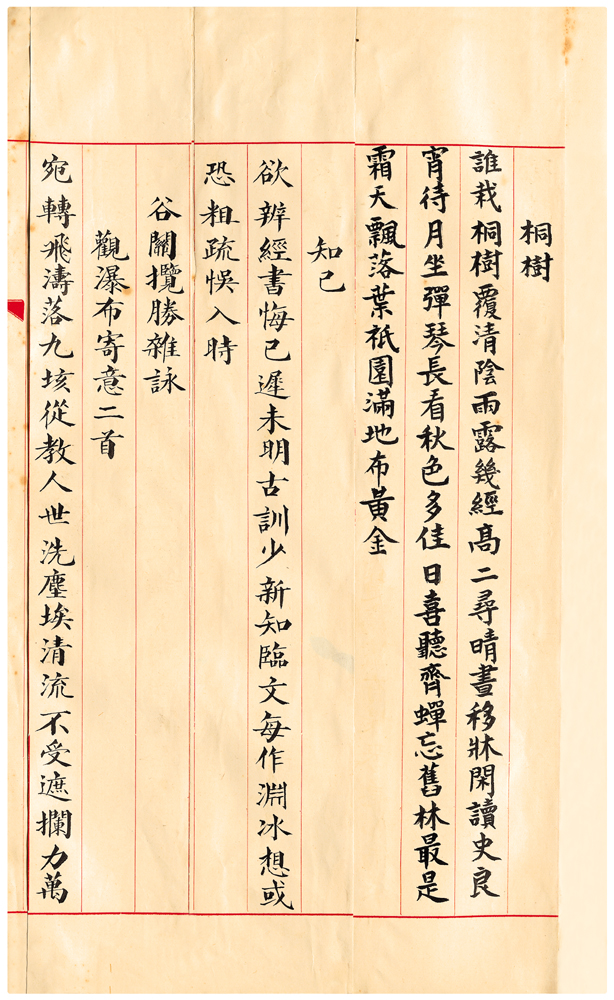 桐樹
誰栽桐樹覆清陰雨露幾經高二尋晴晝移牀閑讀史良
宵待月坐彈琴長看秋色多佳日喜聽齊蟬忘舊林最是
霜天飄落葉祇園滿地布黃金
知己
欲辨經書悔已遲未明古訓少新知臨文每作淵冰想或
恐粗疏悞入時
谷關攬勝雜詠
觀瀑布寄意二首
宛轉飛濤落九垓從教人世洗塵埃清流不受遮攔力萬